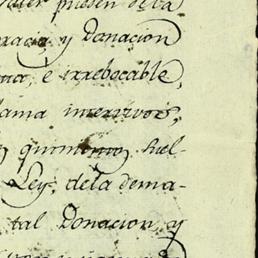 valer pueden de la
gracia, y Donacion
ma, e irrebocable,
llama intervivos,
quinientos Suel-
Ley, de la dema-
tal Donacion, y